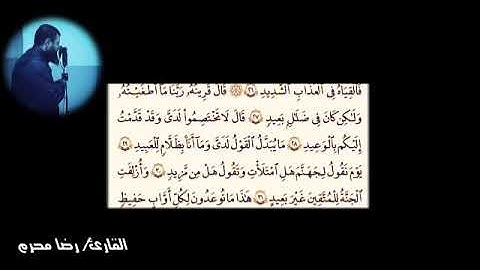 فَأَلْقِيَاهُ فِي الْعَذَابِ الشَّدِيدِ ٢٦ ۞ قَالَ قَرِينُهُ رَبَّنَا مَا أَطْغَيْتُهُ
وَلَٰكِن كَانَ فِي ضَلَالٍ بَعِيدٍ ٢٧ قَالَ لَا تَخْتَصِمُوا لَدَيَّ وَقَدْ قَدَّمْتُ
إِلَيْكُم بِالْوَعِيدِ ٢٨ مَا يُبَدَّلُ الْقَوْلُ لَدَيَّ وَمَا أَنَا بِظَلَّامٍ لِّلْعَبِيدِ ٢٩
يَوْمَ نَقُولُ لِجَهَنَّمَ هَلِ امْتَلَأْتِ وَتَقُولُ هَلْ مِن مَّزِيدٍ ٣٠ وَأُزْلِفَتِ
الْجَنَّةُ لِلْمُتَّقِينَ غَيْرَ بَعِيدٍ ٣١ هَٰذَا مَا تُوعَدُونَ لِكُلِّ أَوَّابٍ حَفِيظٍ
القارئ/ رضا محرم